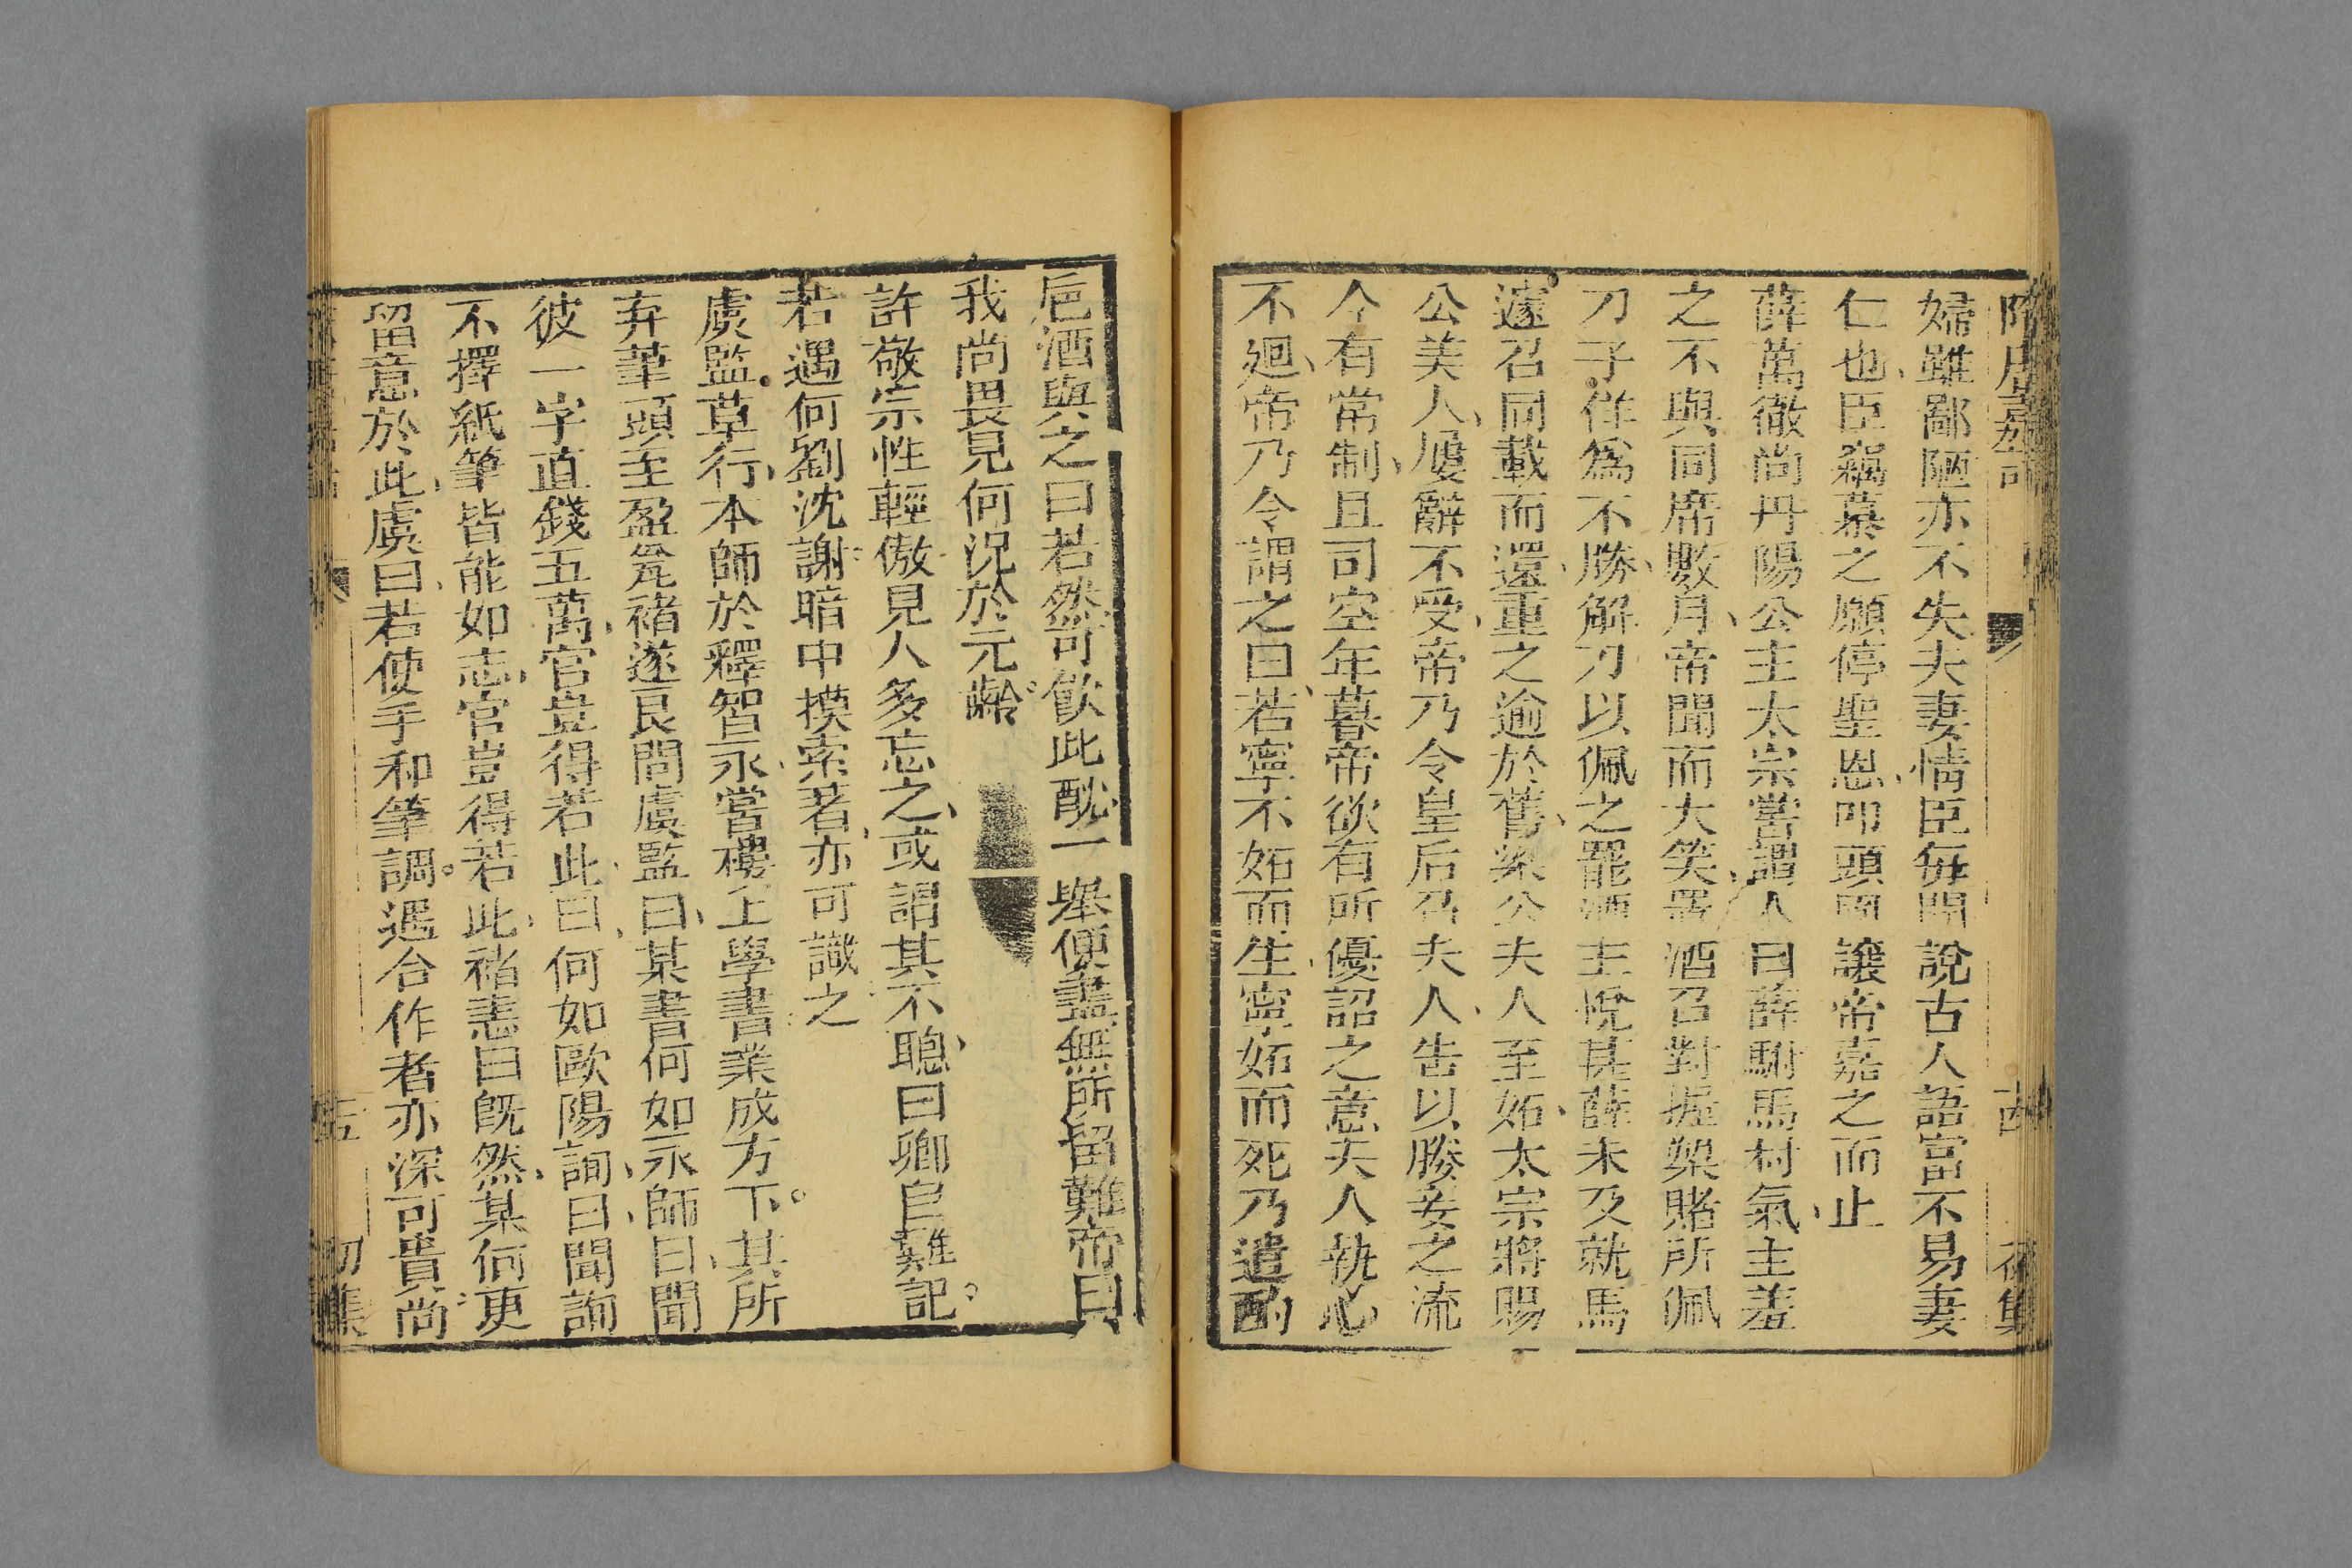 隋唐嘉話
婦雖鄙陋亦不失夫妻情臣每聞說古人語富不易妻
仁也臣竊慕之願停聖恩叩頭固讓帝嘉之而止
薛萬徹尚丹陽公主太宗嘗謂人曰薛駙馬村氣主羞
之不與同席數月帝聞而大笑置酒召對握槊賭所佩
刀子佯為不勝解刀以佩之罷酒主悅甚薛未及就馬
遽召同載而還重之逾於舊梁公夫人至妬太宗將賜
公美人屢辭不受帝乃令皇后召夫人告以勝妾之流
今有常制且司空年暮帝欲有所優詔之意夫人執心
不廻帝乃令謂之曰若寧不妬而生寧妬而死乃遣酌
巵酒與之曰若然可飲此酖一舉便盡無所留難帝曰
我尚畏見何況於元齡
許敬宗性輕傲見人多忘之或謂其不聰曰卿自難記
若遇何劉沈謝暗中摸索著亦可識之
虞監草行本師於釋智永嘗樓上學書業成方下其所
弃筆頭至盈瓮褚遂良問虞監曰某書何如永師曰聞
彼一字直錢五萬官豈得若此曰何如歐陽詢曰聞詢
不擇紙筆皆能如志官豈得若此褚恚曰既然某何更
留意於此虞曰若使手和筆調遇合作者亦深可貴尚
五
初集